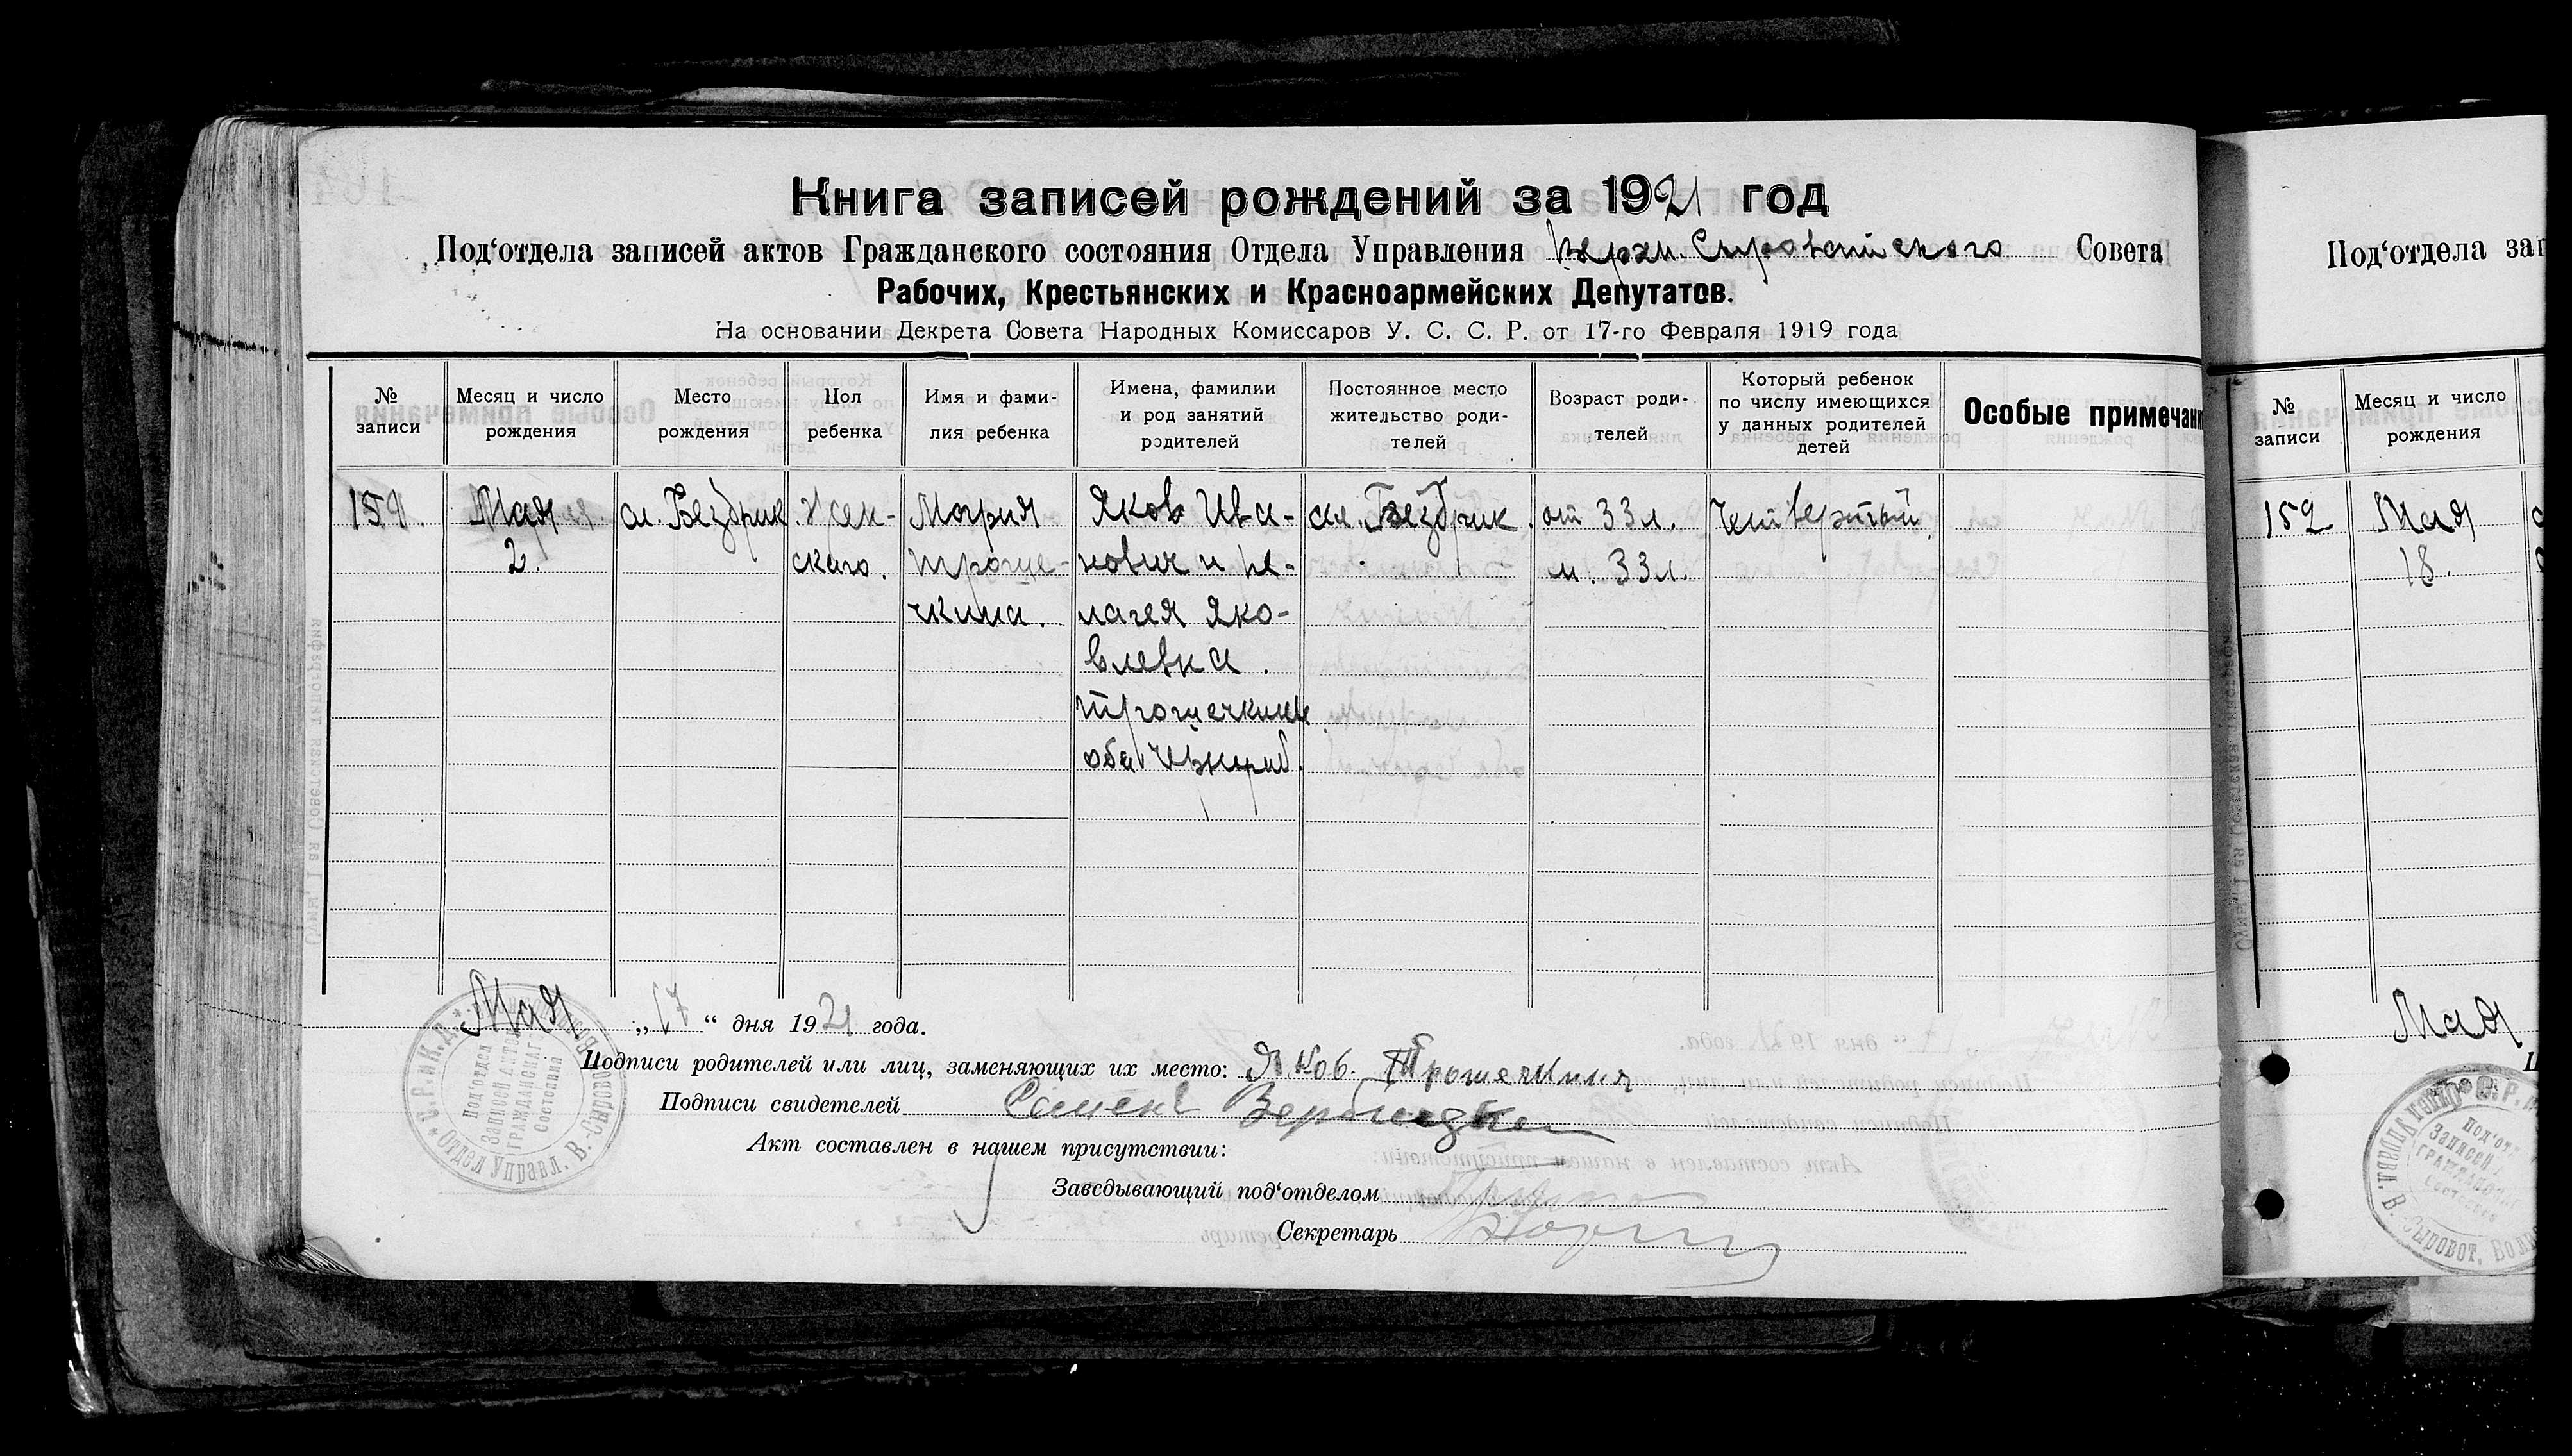 Книга записей рождений за 1921 год
Под‘отдела записей актов Гражданского состояния Отдела Управления Верхн. Сыроватского Совета
Рабочих, Крестьянских и Красноармейских Депутатов.
На основании Декрета Совета Народных Комиссаров У. С. С. Р. от 17-го Февраля 1919 года
№ записи
Месяц и число рождения
Место рождения
Пол ребенка
Имя и фами-
лия ребенка
Имена, фамилии
и род занятий
родителей
Постоянное место
жительство роди-
телей
Возраст роди-
телей
Который ребенок
по числу имеющихся
у данных родителей
детей
Особые примечани
159.
Мая
2.
сл. Бездрик
Жен-
скаго.
Мария
Троше-
чкина.
Яков Ива-
нович и Пе-
лагея Яко-
влевна.
Трошечкины
оба
сл. Бездрик.
от 33 л.
м. 33 л.
Четвертый.
Мая „17“ дня 1921 года.
Подписи родителей или лиц, заменяющих их место: Яков. Трошечкин
Подписи свидетелей
Акт составлен в нашем присутствии:
Заведывающий под‘отделом
Секретарь
С.Р. и К.Д.
Под‘отдел
Записей Актов
Гражданскаг
Состояний
Отдел Управл. В.-Сырово
Под‘отдела зап
№ записи
Месяц и число рождения
152
Мая
18.
Мая
Под‘от
Записей
Сыровот. Вол